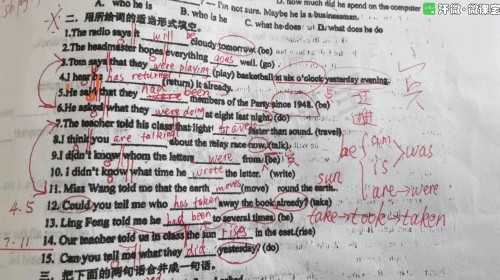 A. who is
B. who he is
C. what he does
D. what does he do
D. how much did he spend on the computer
— I'm not sure. Maybe he is a businessman.
二. 用所给词的适当形式填空。
1.The radio says it will be cloudy tomorrow. (be)
2.The headmaster hopes everything goes well. (go)
3.Tom says that they were playing (play) basketball at six o'clock yesterday evening.
4.I hear he has returned (return) it already.
5.He said that they had been members of the Party since 1948. (be)
6.He asked what they were doing at eight last night. (do)
7.The teacher told his class that light travels faster than sound. (travel)
8.I think you are talking about the relay race now. (talk)
9.I didn't know whom the letters were from. (be)
10. I didn't know what time he wrote the letter. (write)
11. Miss Wang told me that the earth moves (move) round the earth.
12. Could you tell me who has taken away the book already? (take)
13. Ling Feng told me he had been to several times. (be)
14. Our teacher told us in class the sun rises in the east. (rise)
15. Can you tell me what they did yesterday? (do)
三. 把下面的两句话合并成一句话。
be
am
is
was
are → were
sun
take → took → taken
4.5
7.11